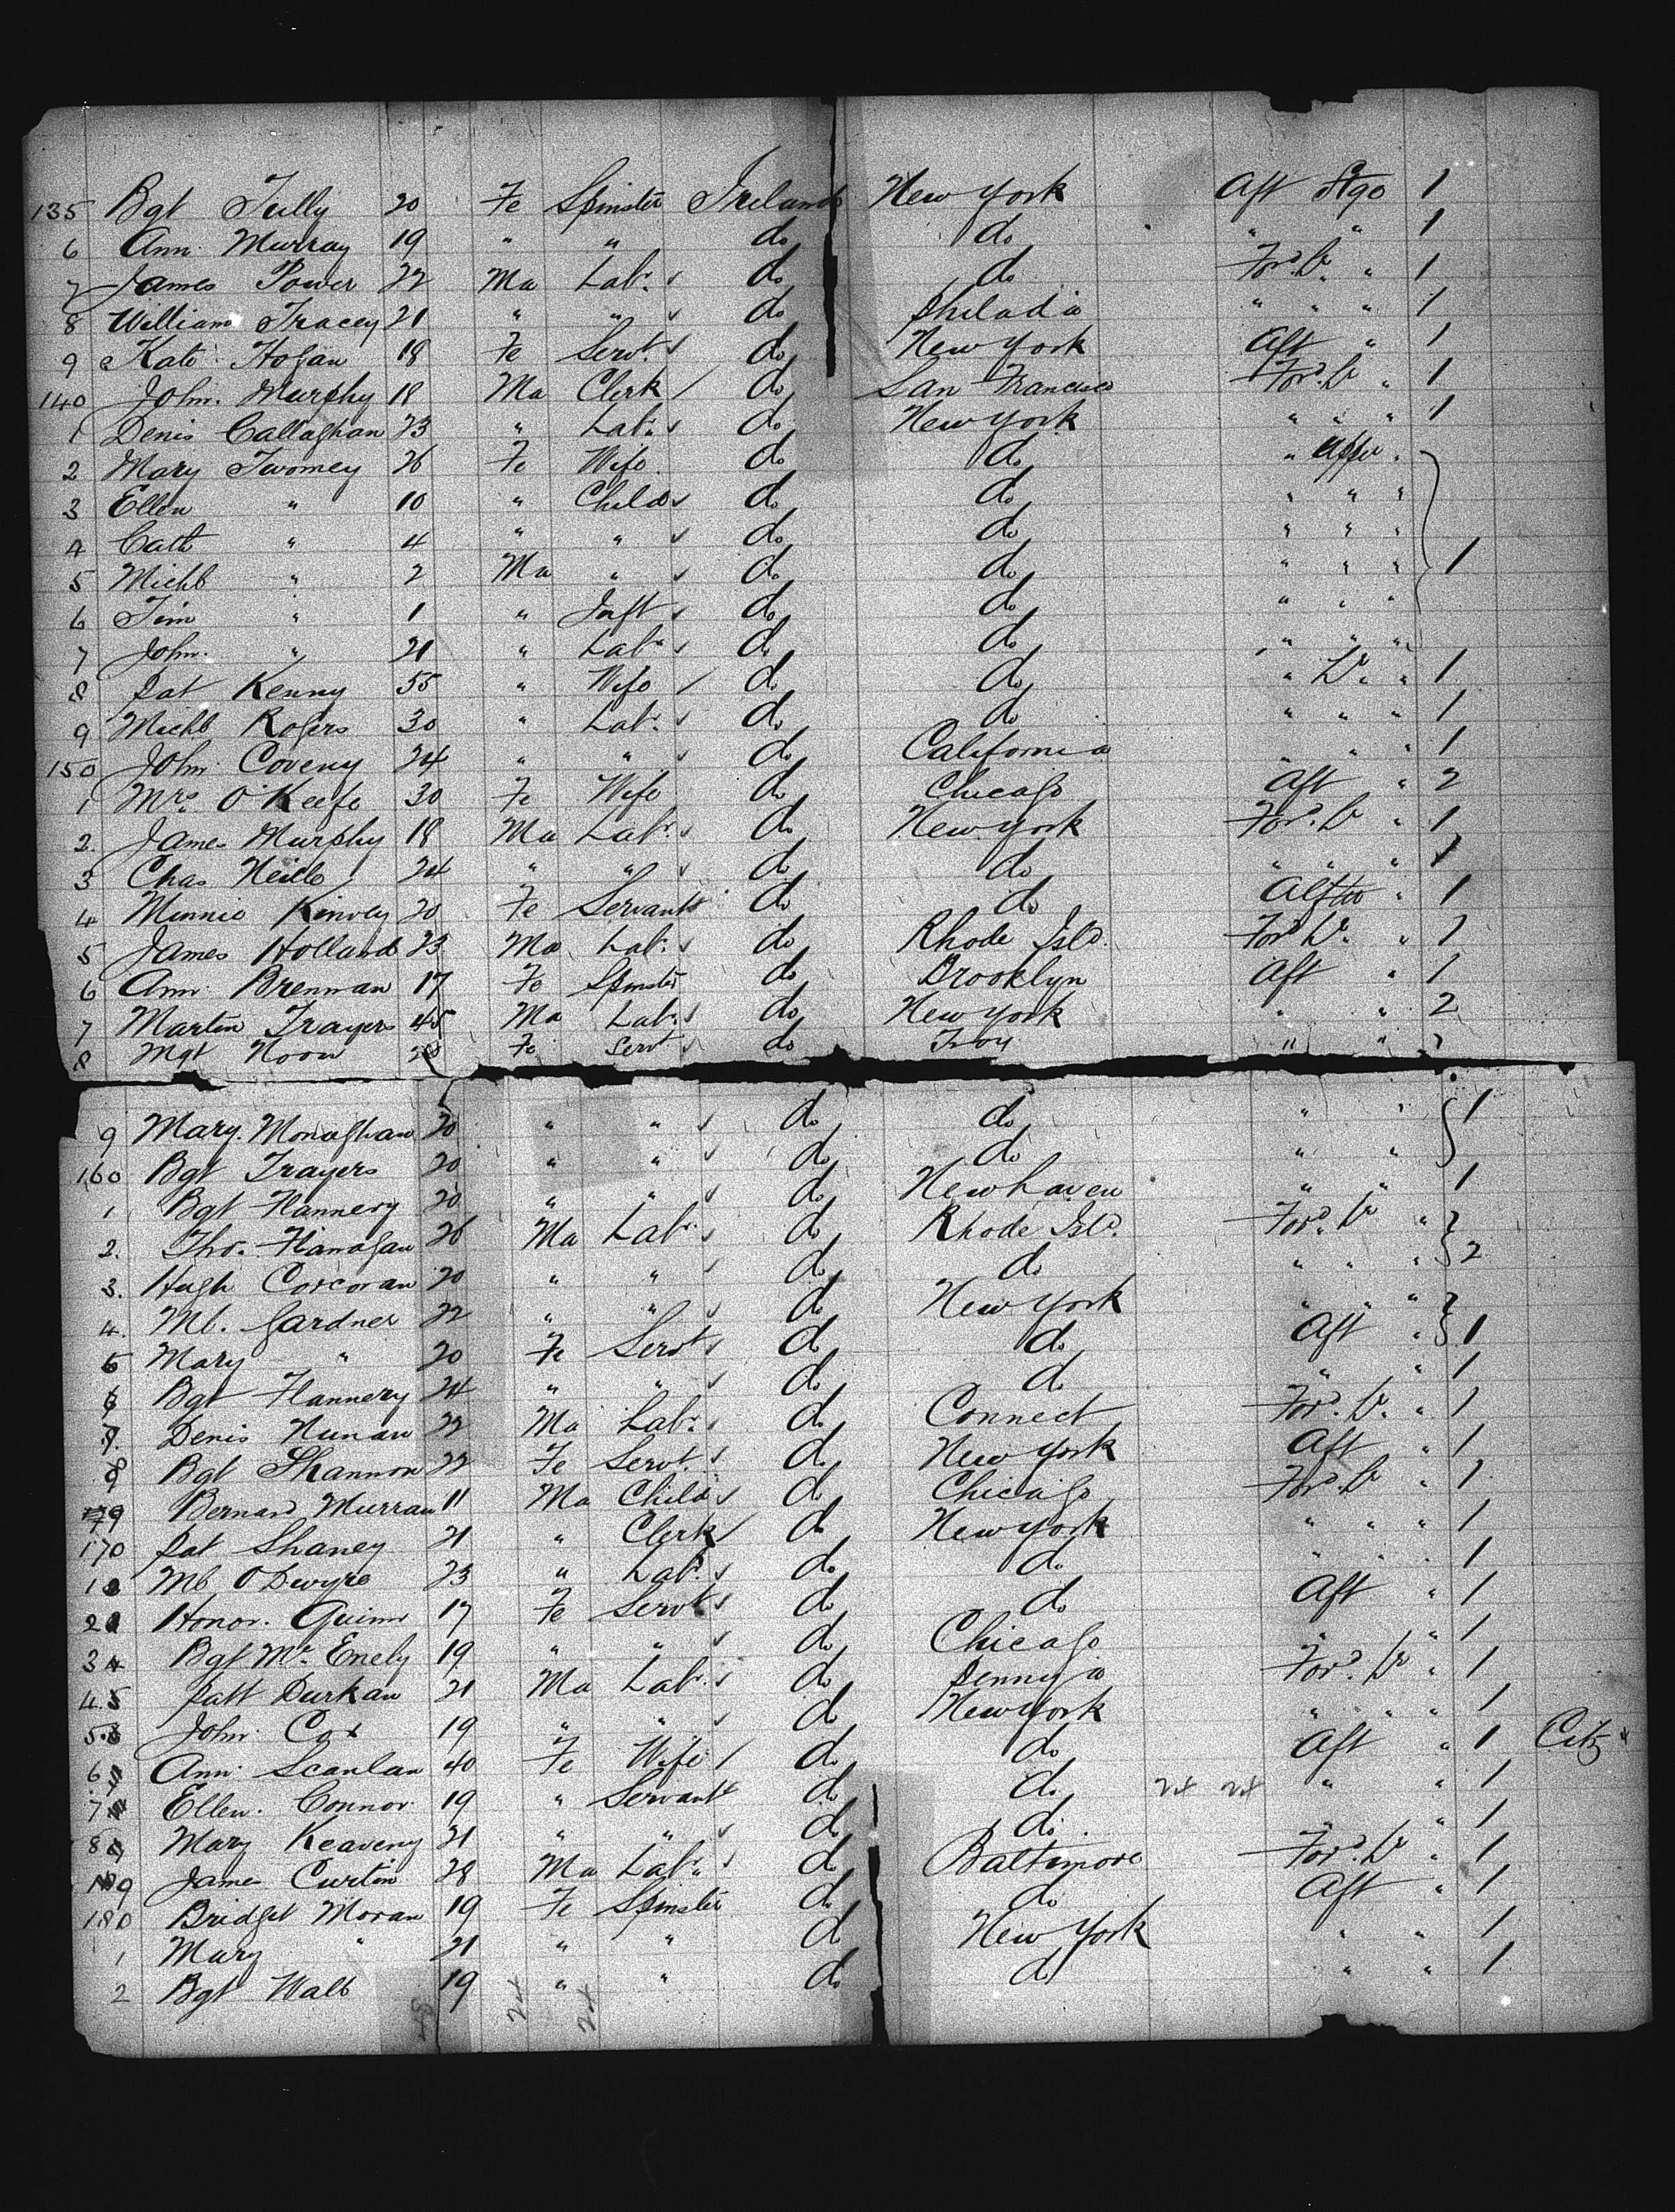 135 Bgt Tully 20 Fe Spinster Ireland New York Aft Stge 1
6 Ann Murray 19 " " do do " " 1
7 James Power 22 Ma Labr. do do Ford. Lr " 1
8 William Tracey 21 " " do Philadia " " " 1
9 Kate Hogan 18 Fe Servt. do New York Aft " 1
140 John Murphy 18 Ma Clerk do San Francisco Ford. Lr " 1
1 Denis Callaghan 23 " Labr. do New York " " " 1
2 Mary Twomey 26 Fe Wife do do " Upper "
3 Ellen " 10 " Child do do " " "
4 Cath " 4 " " do do " " "
5 Michl " 2 Ma " do do " " " 1
6 Tim " 1 " Inft do do " " "
7 John " 21 " Labr do do " " "
8 Pat Kenny 55 " Wife do do " Lr. " 1
9 Michl Rogers 30 " Labr. do do " " " 1
150 John Coveny 24 " " do California " " " 1
1 Mrs O'Keefe 30 Fe Wife do Chicago Aft " 2
2. James Murphy 18 Ma Labr. do New York Ford. Lr " 1
3 Chas Neill 24 " " do do " " " 1
4 Minnie Kinvey 20 Fe Servant do do Aft " 1
5 James Holland 23 Ma Labr. do Rhode Isld. Ford Lr. " 1
6 Ann Brennan 17 Fe Spinster do Brooklyn Aft " 1
7 Martin Trayers 45 Ma Labr. do New York " " 2
8 Mgt Noon 28 Fe Servt do Troy " "
9 Mary Monaghan 20 " " do do " " 1
160 Bgt Trayers 20 " " do do " "
1 Bgt Flannery 20 " " do New haven " " 1
2. Tho. Flanagan 26 Ma Labr. do Rhode Isld. Ford. Lr "
3. Hugh Corcoran 20 " " do do " " " 2
4. Ml. Gardner 22 " " do New York " " "
5 Mary " 20 Fe Servt do do Aft " 1
6 Bgt Flannery 24 " " do do " " 1
7. Denis Nunan 22 Ma Labr. do Connect Ford. Lr. " 1
8 Bgt Shannon 22 Fe Servt. do New York Aft " 1
9 Bernard Murray 11 Ma Child do Chicago Ford. Lr " 1
170 Pat Shaney 21 " Clerk do New York " " " 1
1 Ml O'Dwyre 23 " Labr. do do " " " 1
2 Honor. Quinn 17 Fe Servt do do Aft " 1
3 Bgt Mc Enely 19 " " do Chicago " " 1
4. Patt Durkan 21 Ma Labr. do Pennya Ford. Lr " 1
5. John Cox 19 " " do New York " " " 1
6 Ann Scanlan 40 Fe Wife do do Aft " 1 Citz
7 Ellen Connor 19 " Servant do do 24 24 " " 1
8 Mary Keaveny 21 " " do do " " 1
9 James Curtin 28 Ma Labr. do Baltimore Ford. Lr " 1
180 Bridget Moran 19 Fe Spinster do do Aft " 1
1 Mary " 21 " " do New York " " 1
2 Bgt Wall 19 " " do do " " 1
48 24 24